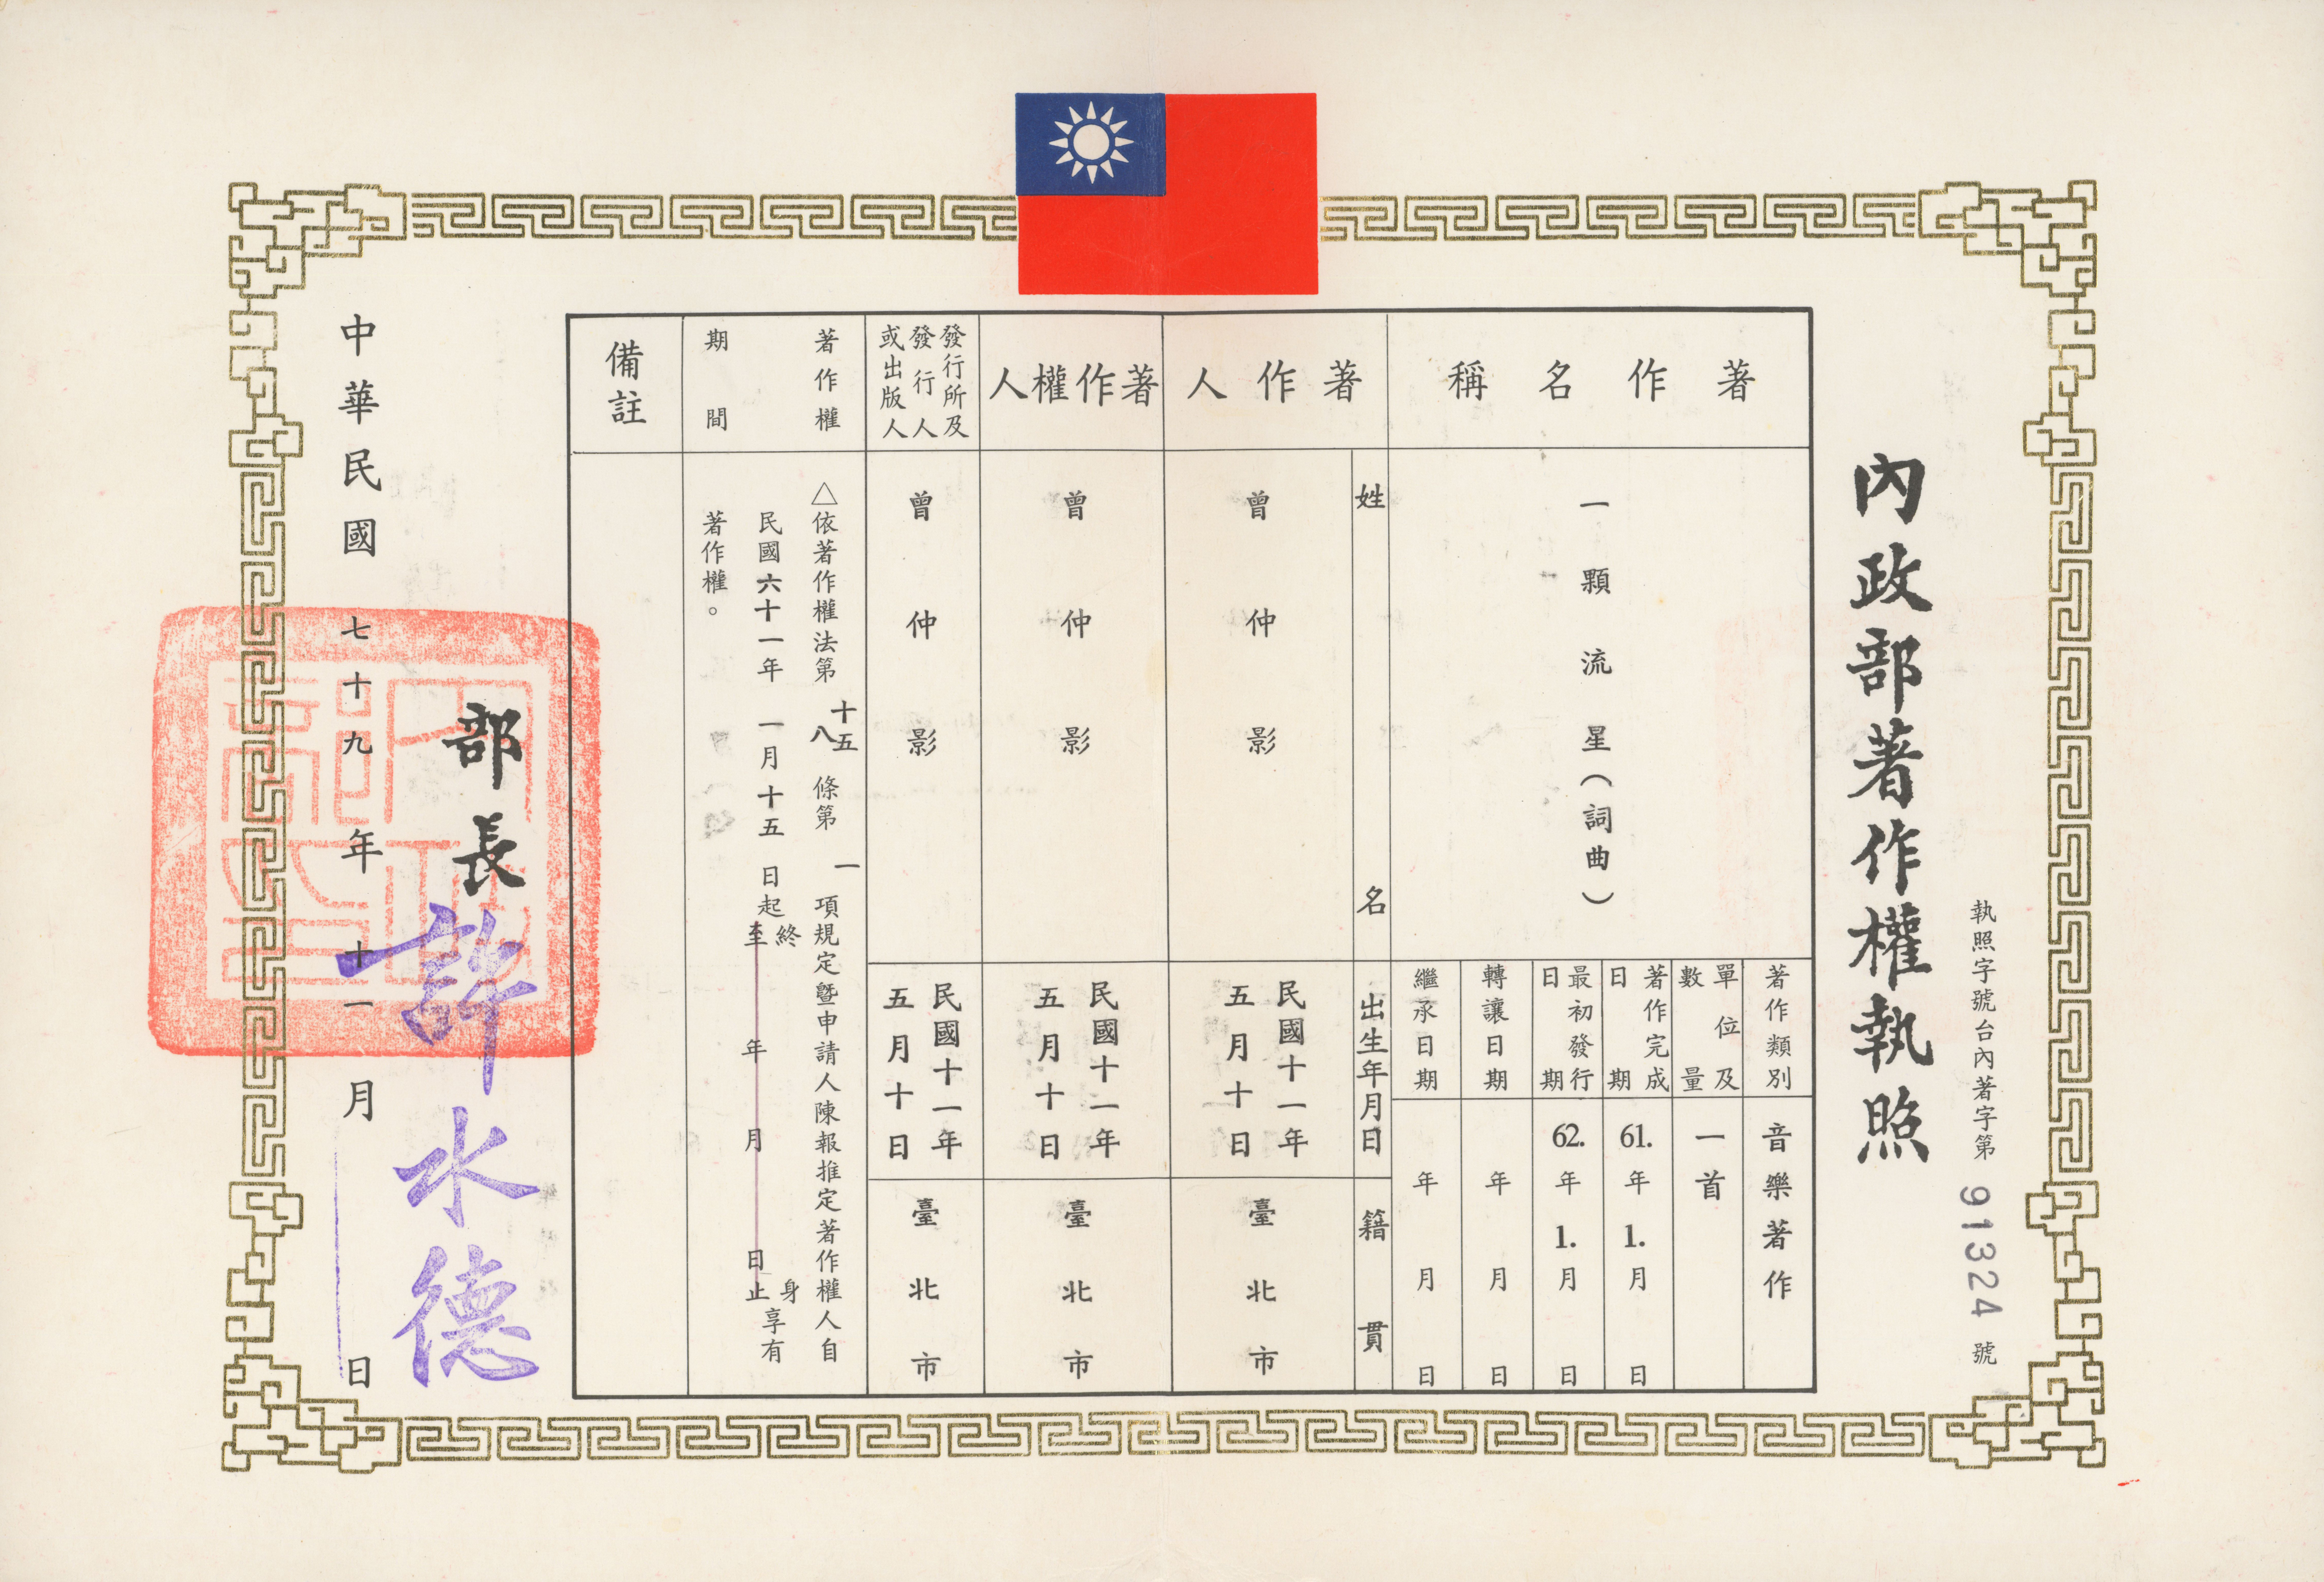 內政部著作權執照
執照字號台內著字第 91324 號
著作名稱
一顆流星（詞曲）
著作類別
音樂著作
單位及
數量
一首
著作完成
日期
61.年1.月 日
最初發行
日期
62.年1.月 日
轉讓日期
年 月 日
繼承日期
年 月 日
姓名
出生年月日
籍貫
著作人
曾仲影
民國十一年
五月十日
臺北市
著作權人
曾仲影
民國十一年
五月十日
臺北市
發行所及
發行人
或出版人
曾仲影
民國十一年
五月十日
臺北市
著作權
期間
△依著作權法第 十五 八 條第 一 項規定曁申請人陳報推定著作權人自
民國六十一年 一月十五 日起 終身享有
至 年 月 日止
著作權。
備註
部長 許水德
中華民國 七十九 年 十一 月 日